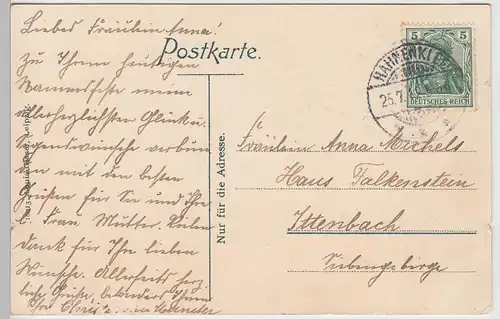 Liebes Fräulein Anna!
Zu Ihrem heutigen
Namensfeste meine
allerherzlichsten Glück u.
Segenswünsche verbun
den mit den besten
Grüßen für Sie und Ihre
l. Frau Mutter. Vielen
Dank für Ihre lieben
Wünsche. Allerseits herz
liche Grüße, besonders Ihnen
Ihre
Postkarte.
Nur für die Adresse.
5 5
DEUTSCHES REICH
HAHNENKLEE
25.7.
Fräulein Anna Michels
Haus Falkenstein
Ittenbach
Siebengebirge